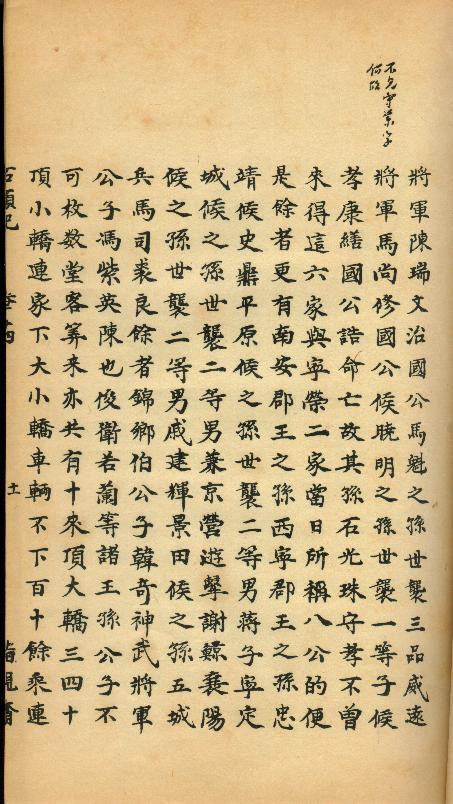 何故
將軍陳瑞文治國公馬魁之孫世襲三品威遠
將軍馬尚修國公候曉明之孫世襲一等子候
孝康繕國公誥命亡故其孫石光珠守孝不曾
来得這六家與寧榮二家當日所稱八公的便
是餘者更有南安郡王之孫西寧郡王之孫忠
靖候史鼎平原候之孫世襲二等男蔣子寧定
城候之孫世襲二等男兼京營遊擊謝鯨襄陽
候之孫世襲二等男戚建輝景田候之孫五城
兵馬司裘良餘者錦鄉伯公子韓奇神武將軍
公子馮紫英陳也俊衛若蘭等諸王孫公子不
可枚数堂客算来亦共有十来頂大轎三四十
頂小轎連家下大小轎車輛不下百十餘乘連
石頭記
十一
脂硯齋